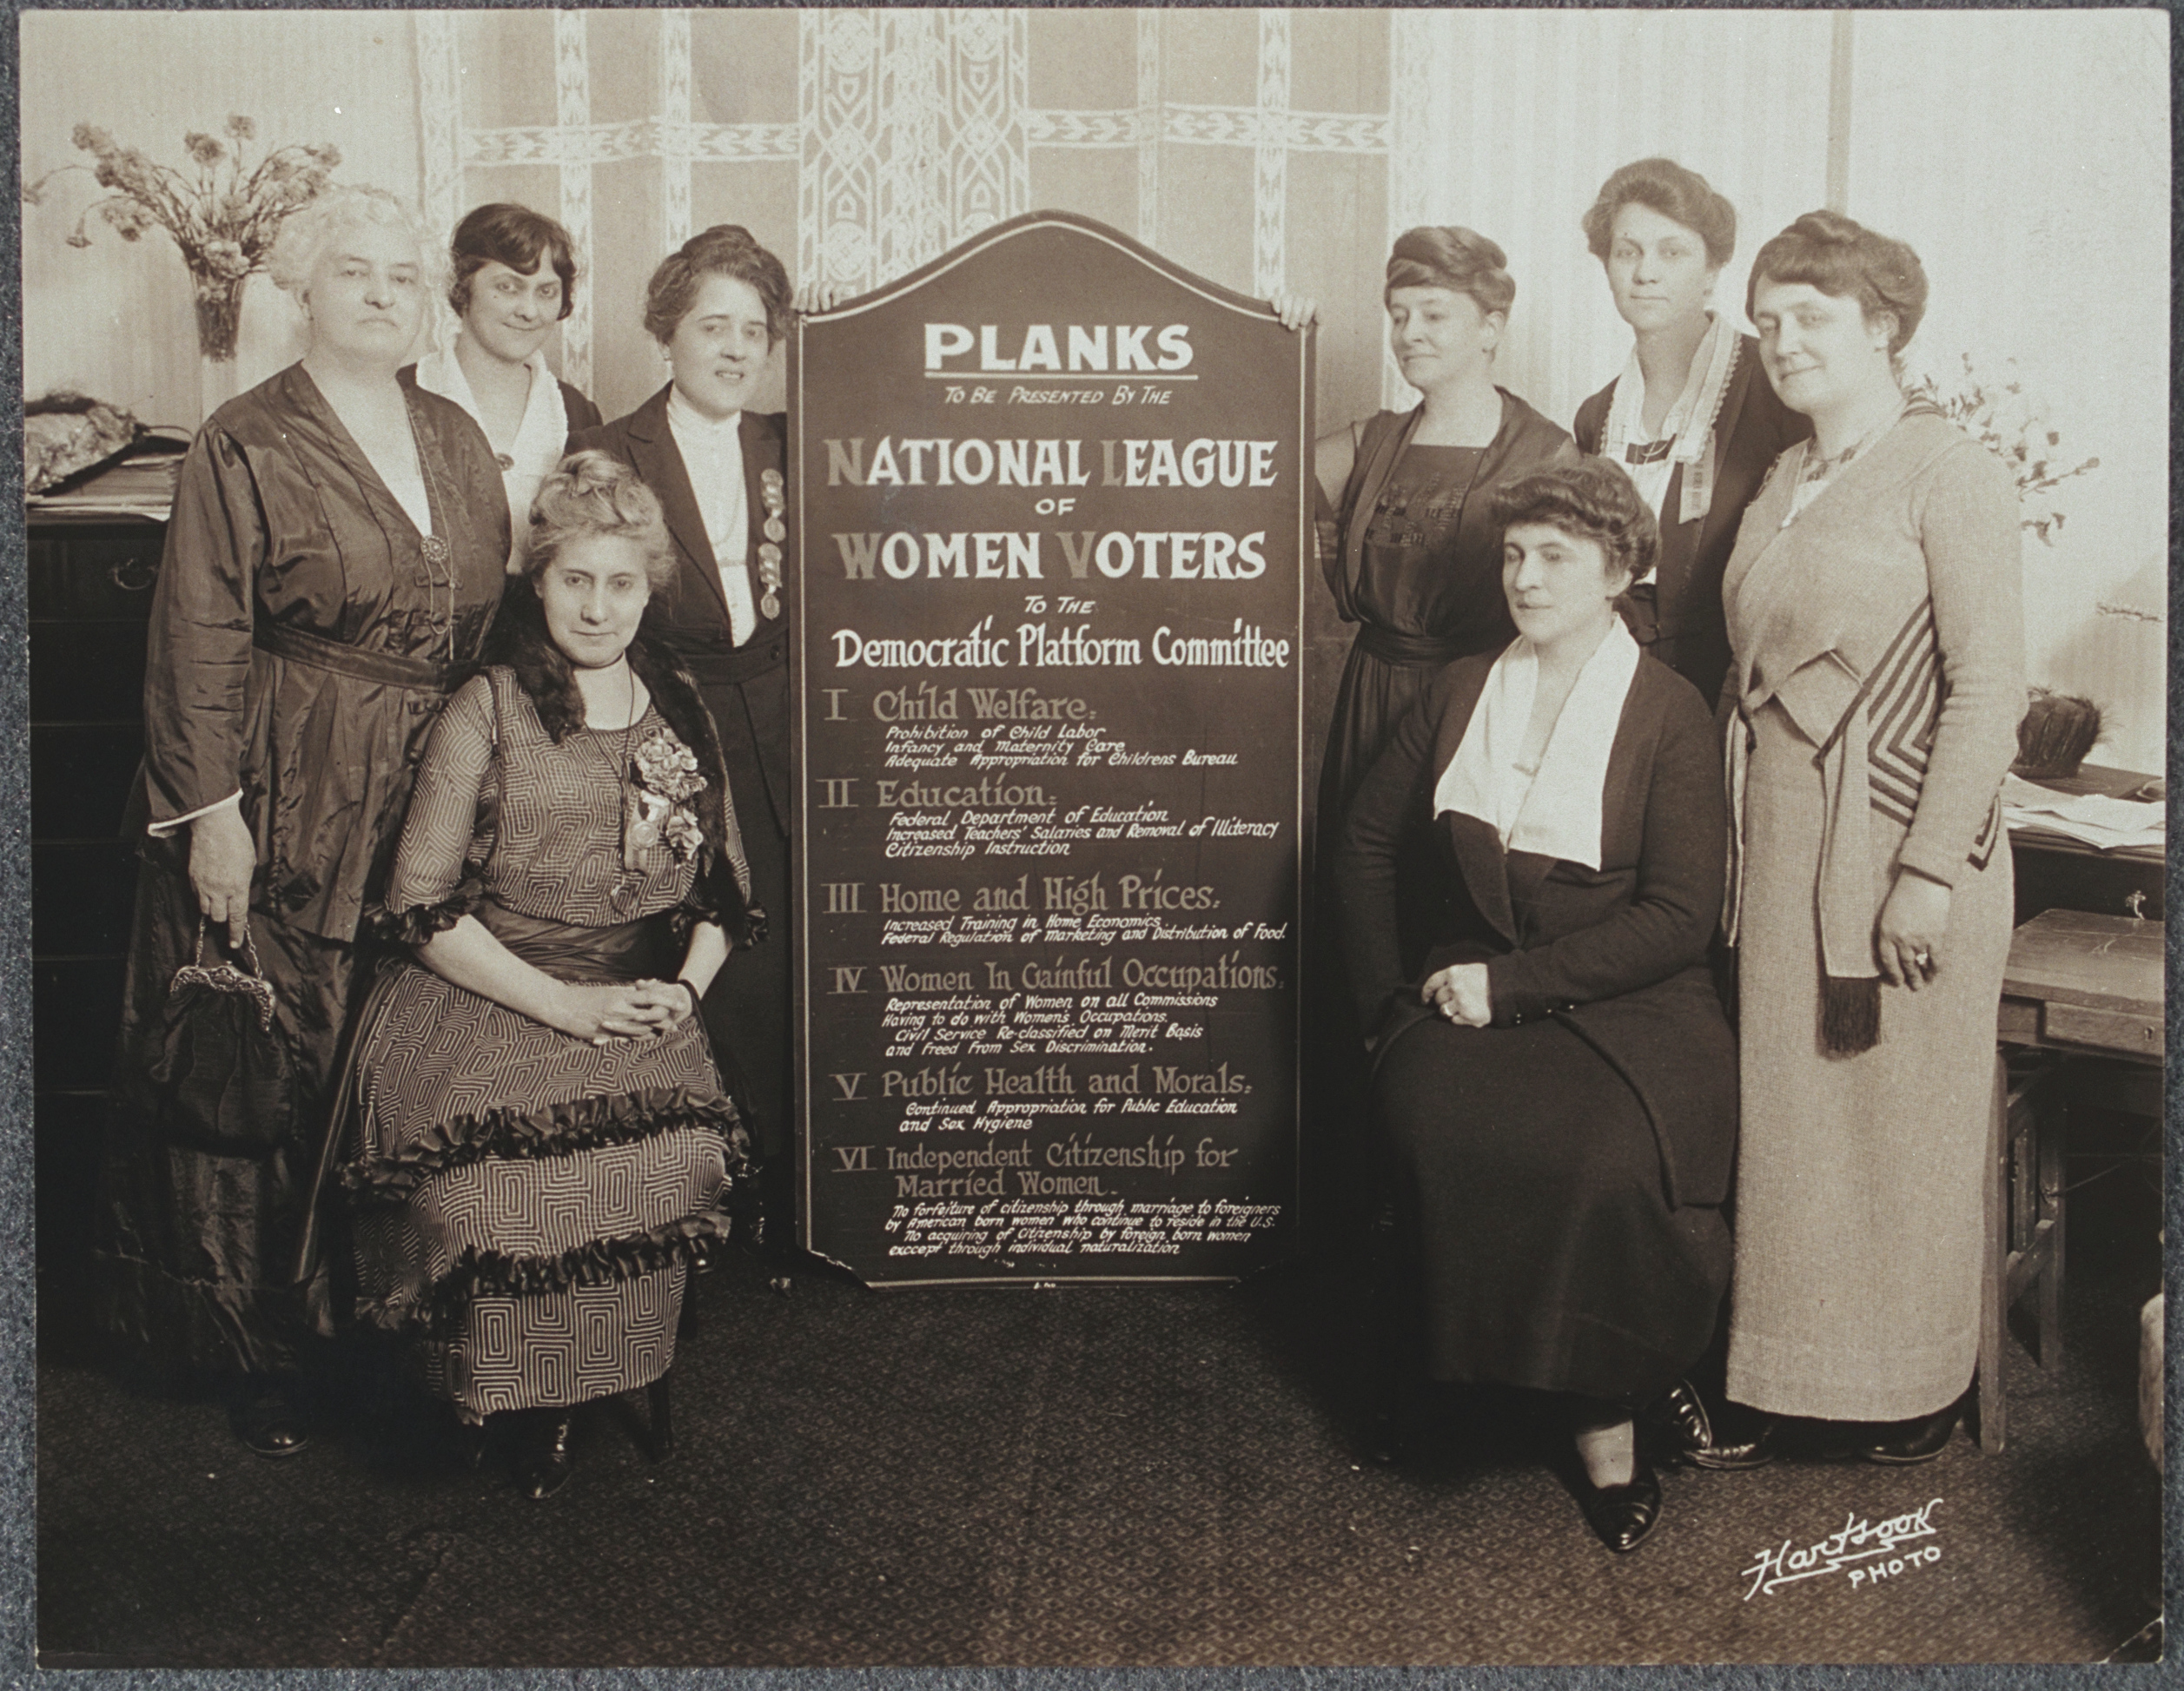 PLANKS
TO BE PRESENTED BY THE
NATIONAL LEAGUE
OF
WOMEN VOTERS
TO THE
Democratic Platform Committee
I Child Welfare:
Prohibition of Child Labor
Infancy and Maternity Care
Adequate Appropriation for Childrens Bureau
II Education:
Federal Department of Education
Increased Teachers' Salaries and Removal of Illiteracy
Citizenship Instruction
III Home and High Prices:
Increased Training in Home Economics
Federal Regulation of Marketing and Distribution of Food.
IV Women In Gainful Occupations:
Representation of Women on all Commissions
Having to do with Women's Occupations.
Civil Service Re-classified on Merit Basis
and Freed From Sex Discrimination.
V Public Health and Morals:
Continued Appropriation for Public Education
and Sex Hygiene
VI Independent Citizenship for
Married Women.
No forfeiture of citizenship through marriage to foreigners
by American born women who continue to reside in the U.S.
No acquiring of Citizenship by foreign born women
exccept through individual naturalization
Hartsook
PHOTO